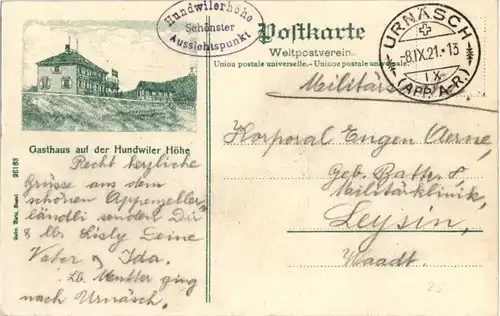 Hundwilerhöhe
Schönster
Aussichtspunkt
Postkarte
Weltpostverein.
Union postale universelle. - Unione postale universale.
URNÄSCH
-8.IX.21.-13
IX
(APP. A.-R.)
Militär
Gasthaus auf der Hundwiler Höhe
26183
Recht herzliche
Grüsse aus dem
schönen Appenzeller
ländli senden Dir
& lb. Lisly Deine
Vater & Ida.
Lb. Mutter ging
nach Urnäsch.
Korporal Eugen Aerne,
Geb. Batt. 8
Militärklinik,
Leysin,
Waadt.